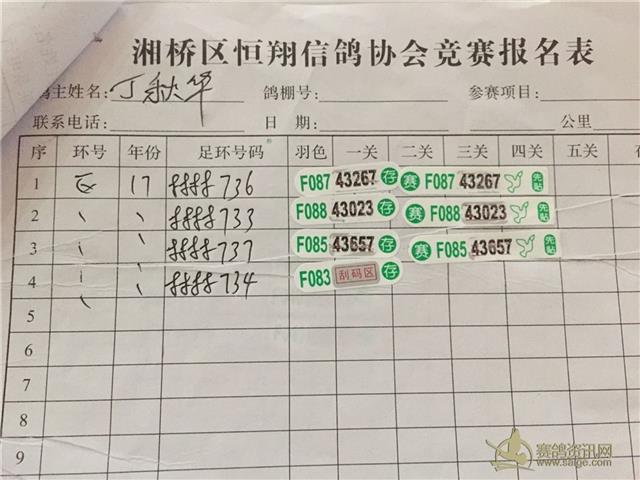 湘桥区恒翔信鸽协会竞赛报名表
鸽主姓名: 丁秋华 鸽棚号: 参赛项目:
联系电话: 日 期: 公里
序 环号 年份 足环号码 羽色 一关 二关 三关 四关 五关
1 17 736 F087 43267 存 赛 F087 43267 先贴
2 、 、 733 F088 43023 存 赛 F088 43023 先贴
3 、 、 737 F085 43657 存 赛 F085 43657 先贴
4 、 、 734 F083 刮码区 存
5
6
7
8
9
赛鸽资讯网
www.saige.com